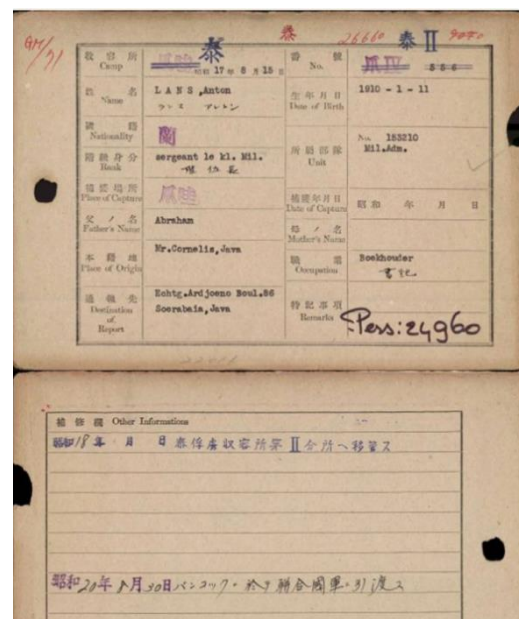 GM/71
泰 26660 泰 II
收容所 Camp 昭和 17 年 8 月 15 日
番號 No. 爪 IV
姓名 Name LANS, Anton
ランス アントン
生年月日 Date of Birth 1910 - 1 - 11
國籍 Nationality 蘭
階級身分 Rank sergeant le kl. Mil.
所屬部隊 Unit No. 153210
Mil.Adm.
捕獲場所 Place of Capture 爪哇
捕獲年月日 Date of Capture 昭和 年 月 日
父ノ名 Father's Name Abraham
母ノ名 Mother's Name
本籍地 Place of Origin Mr.Cornelis, Java
職業 Occupation Boekhouder
書記
通報先 Destination of Report Echtg.Ardjoeno Boul.86
Soerabaia, Java
特記事項 Remarks Pers: 24960
補修欄 Other Informations
昭和18年 月 日 泰俘虜収容所第II分所へ移管ス
昭和20年8月30日バンコックニ於テ聯合國軍ニ引渡ス